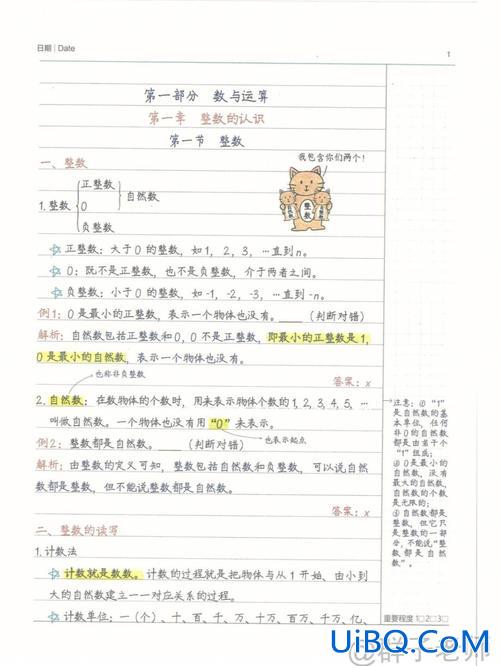 日期 | Date
1
第一部分 数与运算
第一章 整数的认识
第一节 整数
一、整数
我包含你们两个!
正整数
1.整数 0 自然数
负整数
整数
☆正整数：大于0的整数，如1，2，3，…直到n。
☆0：既不是正整数，也不是负整数，介于两者之间。
☆负整数：小于0的整数，如-1，-2，-3，…直到-n。
例1：0是最小的正整数，表示一个物体也没有。____(判断对错)
解析：自然数包括正整数和0，0不是正整数，即最小的正整数是1，
0是最小的自然数，表示一个物体也没有。
也称非负整数
答案：x
2.自然数：在数物体的个数时，用来表示物体个数的1，2，3，4，5，…
叫做自然数。一个物体也没有用“0”来表示。
也表示起点
例2：整数都是自然数。____(判断对错)
解析：由整数的定义可知，整数包括自然数和负整数，可以说自然
数都是整数，但不能说整数都是自然数。
答案：x
注意：①“1”
是自然数的基
本单位，任何
非0的自然数
都是由若干个
“1”组成；
②0是最小的
自然数，没有
最大的自然数，
自然数的个数
是无限的；
③自然数都是
整数，但它只
是整数的一部
分，不能说“整
数都是自然
数”。
二、整数的读写
1.计数法
☆计数就是数数。计数的过程就是把物体与从1开始、由小到
大的自然数建立一一对应关系的过程。
☆计数单位：一(个)、十、百、千、万、十万、百万、千万、亿、
重要程度 1□2□3□
UiBQ.CoM